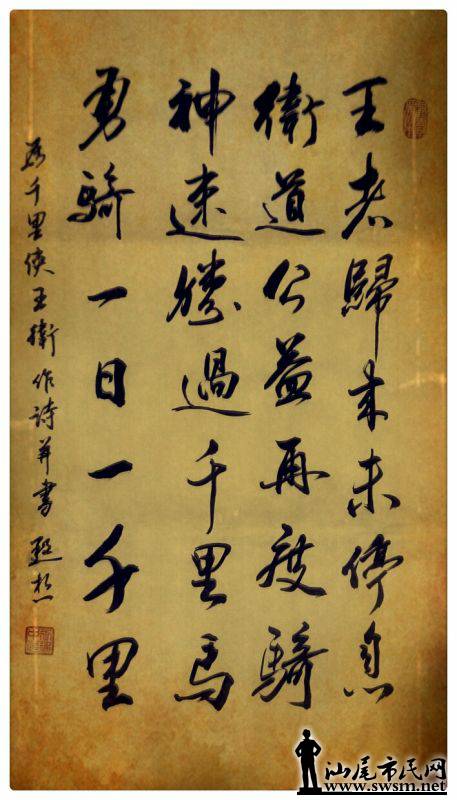 王老歸来未停息
衛道公益再度騎
神速勝過千里馬
勇騎一日一千里
为千里俠王衛作詩并書
汕尾市民网
www.swsm.net